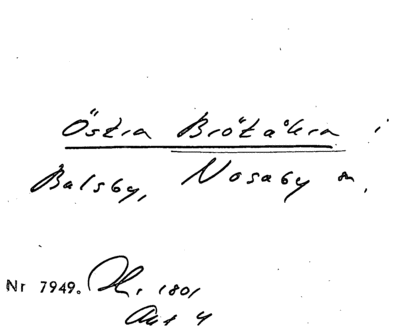 Östra Brötåkra i
Balsby, Nosaby sn,
Nr 7949. Kr. 1801
Akt 4